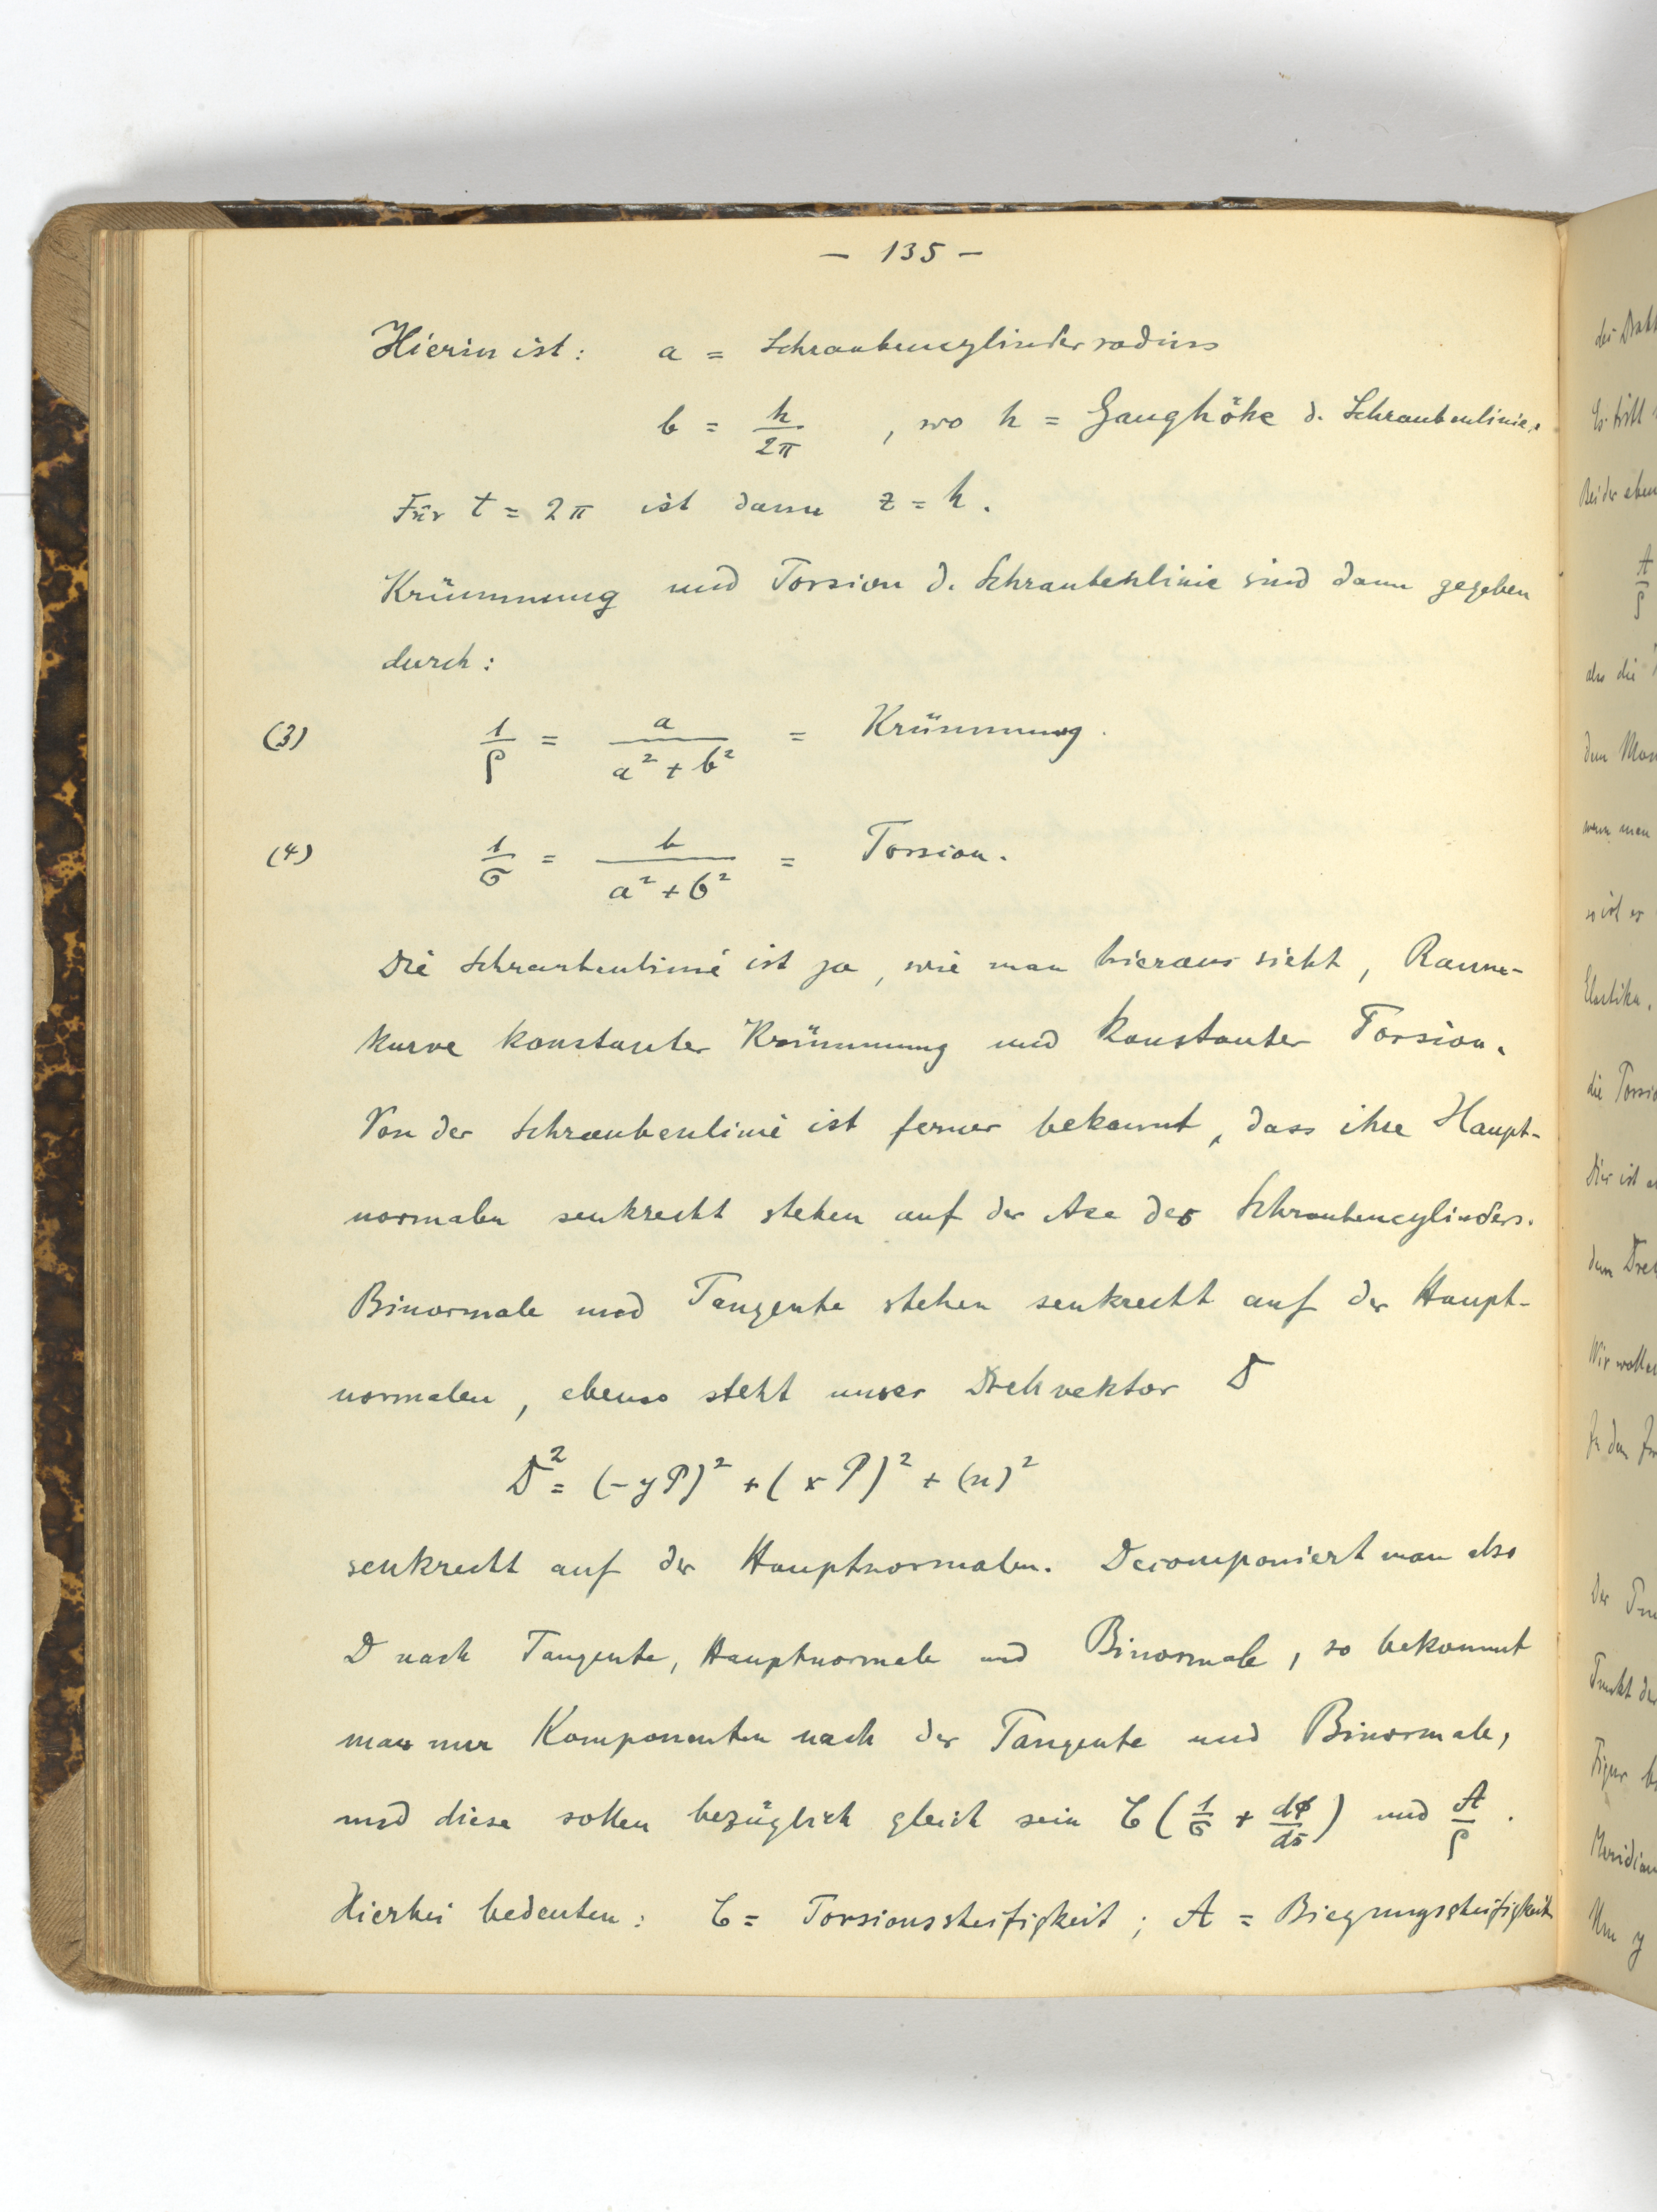 — 135 —
Hierin ist: a = Schraubencylinderradius
b = h/2π , wo h = Ganghöhe d. Schraubenlinie.
Für t = 2π ist dann z = h.
Krümmung und Torsion d. Schraubenlinie sind dann gegeben
durch:
(3) 1/ρ = a/(a² + b²) = Krümmung.
(4) 1/σ = b/(a² + b²) = Torsion.
Die Schraubenlinie ist ja, wie man hieraus sieht, Raum-
kurve konstanter Krümmung und konstanter Torsion.
Von der Schraubenlinie ist ferner bekannt, dass ihre Haupt-
normalen senkrecht stehen auf der Axe des Schraubencylinders.
Binormale und Tangente stehen senkrecht auf der Haupt-
normalen, ebenso steht unser Drehvektor D
D² = (-yP)² + (xP)² + (n)²
senkrecht auf der Hauptnormalen. Decomponiert man also
D nach Tangente, Hauptnormale und Binormale, so bekommt
man nur Komponenten nach der Tangente und Binormale,
und diese sollen bezüglich gleich sein C(1/σ + dϕ/ds) und A/ρ.
Hierbei bedeuten: C = Torsionssteifigkeit; A = Biegungssteifigkeit